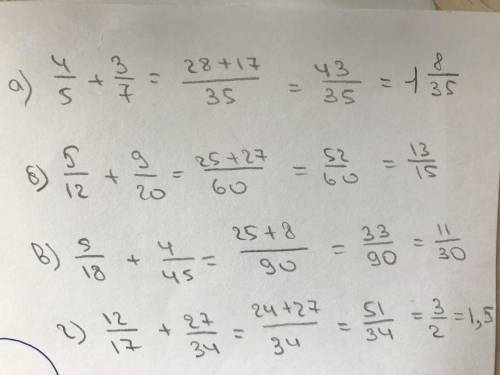 а) 4/5 + 3/7 = 28+17/35 = 43/35 = 1 8/35
б) 5/12 + 9/20 = 25+27/60 = 52/60 = 13/15
в) 5/18 + 4/45 = 25+8/90 = 33/90 = 11/30
г) 12/17 + 27/34 = 24+27/34 = 51/34 = 3/2 = 1,5